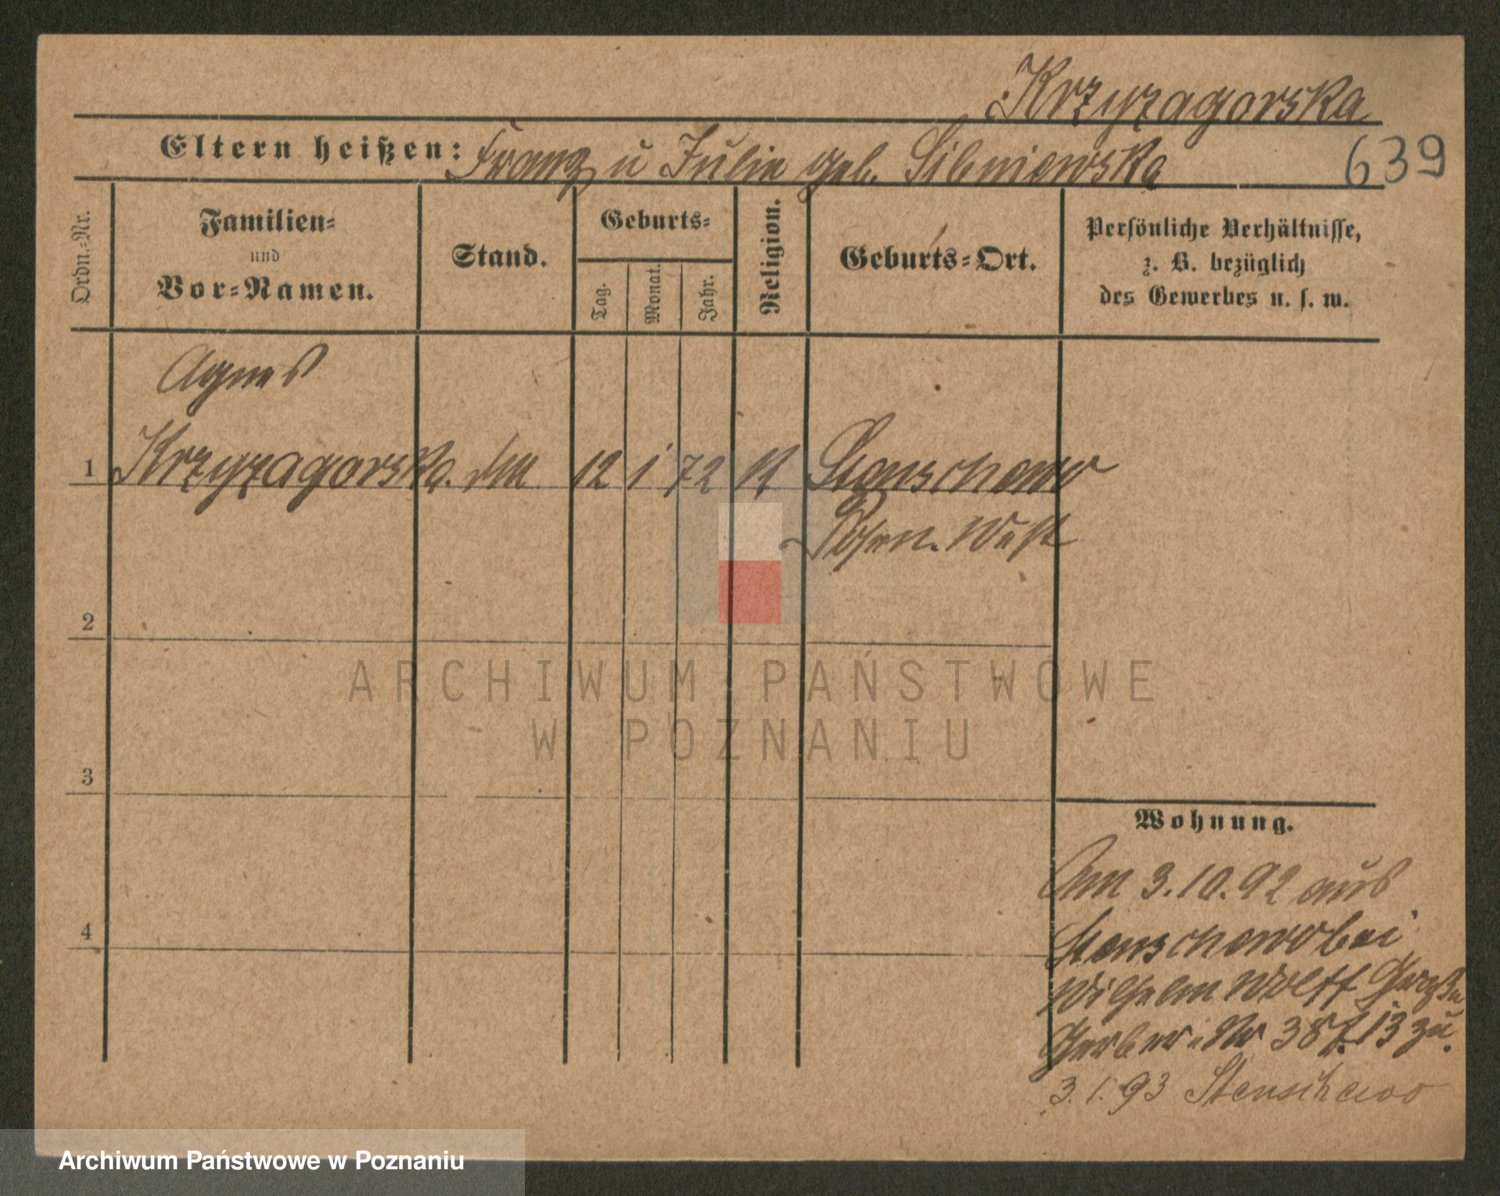 Krzyzagorska
Eltern heißen: Franz u Julie geb. Libniewska 639
Ordn.-Nr.
Familien- und Vor-Namen.
Stand.
Geburts-
Tag.
Monat.
Jahr.
Religion.
Geburts-Ort.
Persönliche Verhältnisse,
z. B. bezüglich
des Gewerbes u. s. w.
Agnes
1 Krzyzagorska. 12 1 72 K Stenschewo
Posen. West
2
3
4
ARCHIWUM PAŃSTWOWE
W POZNANIU
Wohnung.
Am 3.10.92 aus
Stenschewo bei
Wilhelm Wolff
Gerber Nr 38 f. 13 zu.
3.1.93 Stenschewo
Archiwum Państwowe w Poznaniu